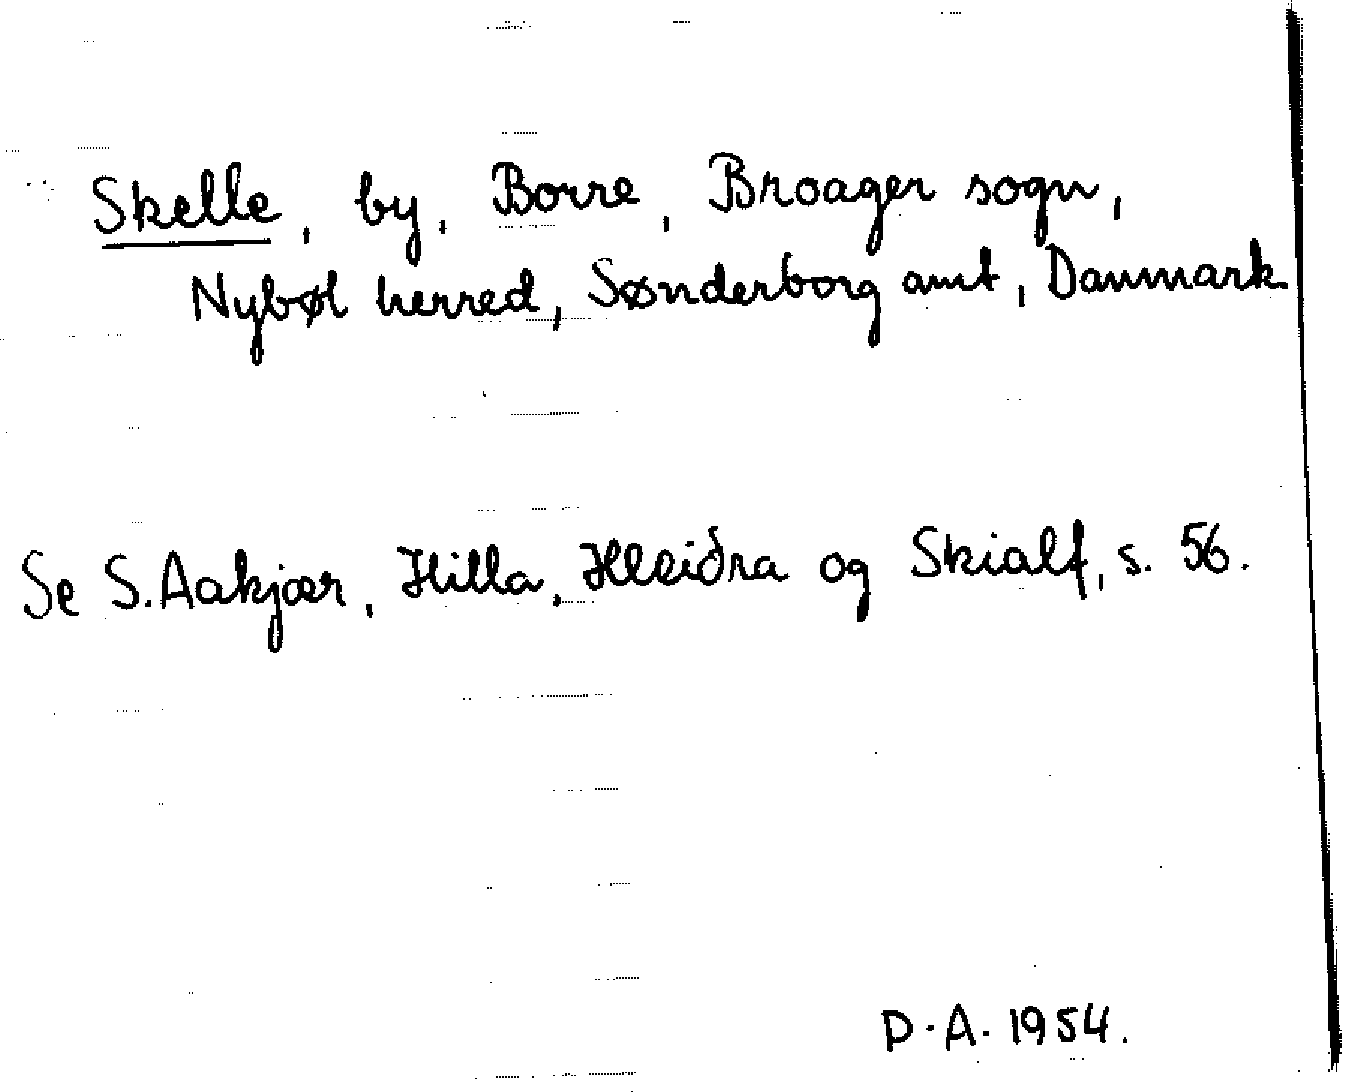 Skelle, by, Borre, Broager sogn,
Nybøl herred, Sønderborg amt, Danmark
Se S. Aakjær, Hilla, Hleiðra og Skialf, s. 56.
D. A. 1954.